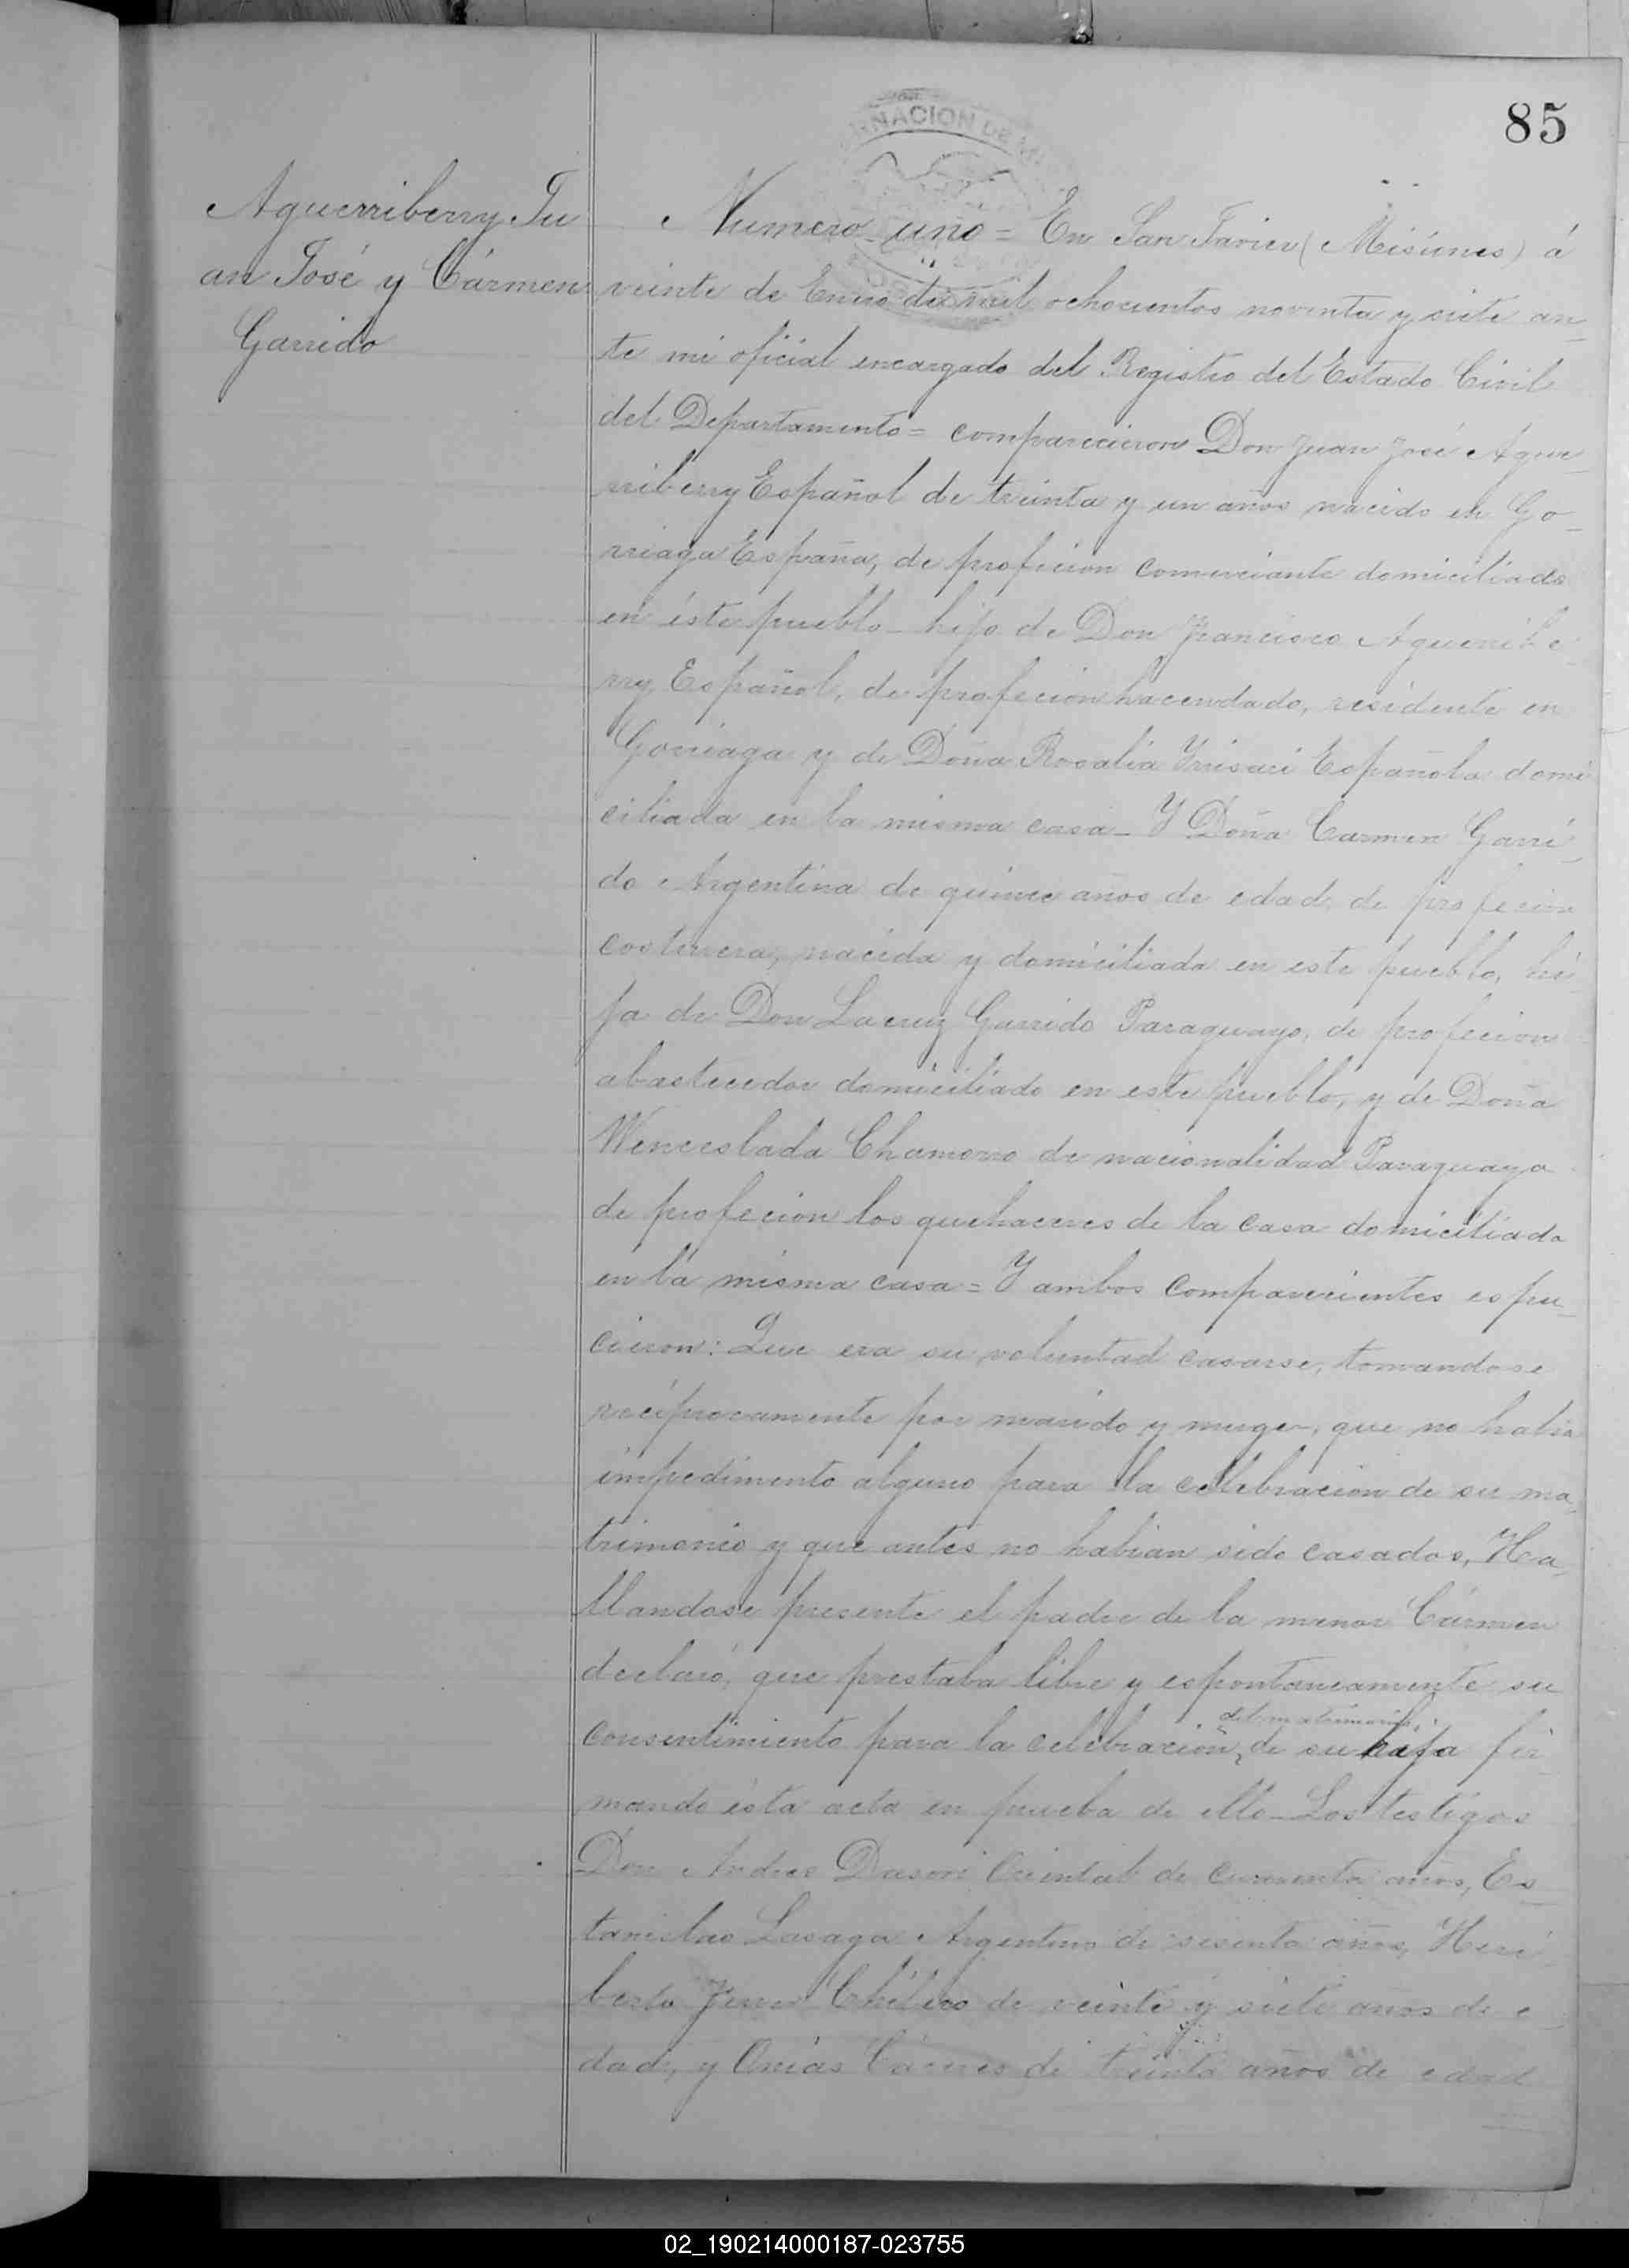 85
RNACION DE MI
Aguerriberry Ju
an José y Cármen
Garrido
Numero uno = En San Javier (Misiones) á
veinte de Enero de mil ochocientos noventa y siete an_
te mi oficial encargado del Registro del Estado Civil
del Departamento = comparecieron Don Juan José Ague_
rriberry Español de treinta y un años nacido en Go_
rriaga España, de profecion comerciante domiciliado
en éste pueblo_ hijo de Don Francisco Aguerribe_
rry Español, de profecion hacendado, residente en
Gorriaga y de Doña Rosalia Yrisari Española domi
ciliada en la misma casa_ Y Doña Carmen Garri_
do Argentina de quince años de edad de profecion
costurera, nacida y domiciliada en este pueblo, hi_
ja de Don Lacruz Garrido Paraguayo, de profecion
abastecedor domiciliado en este pueblo, y de Doña
Wenceslada Chamorro de nacionalidad Paraguaya
de profecion los quehaceres de la casa domiciliada
en la misma casa = Y ambos comparecientes espu_
cieron: Que era su voluntad casarse, tomandose
reciprocamente por marido y muger, que no habia
impedimento alguno para la celebracion de su ma_
trimonio y que antes no habian sido casados, Ha_
llandose presente el padre de la menor Cármen
declaró, que prestaba libre y espontaneamente su
del matrimonio
consentimiento para la celebracion de su hija fir_
mando ésta acta en prueba de ello_ Los testigos
Don Andres Dasori Oriental de cuarenta años, Es_
tanislao Lasaga Argentino de sesenta años, Heri_
berto Chileno de veinte y siete años de e_
dad, y Onias Cáceres de treinta años de edad
02_190214000187-023755